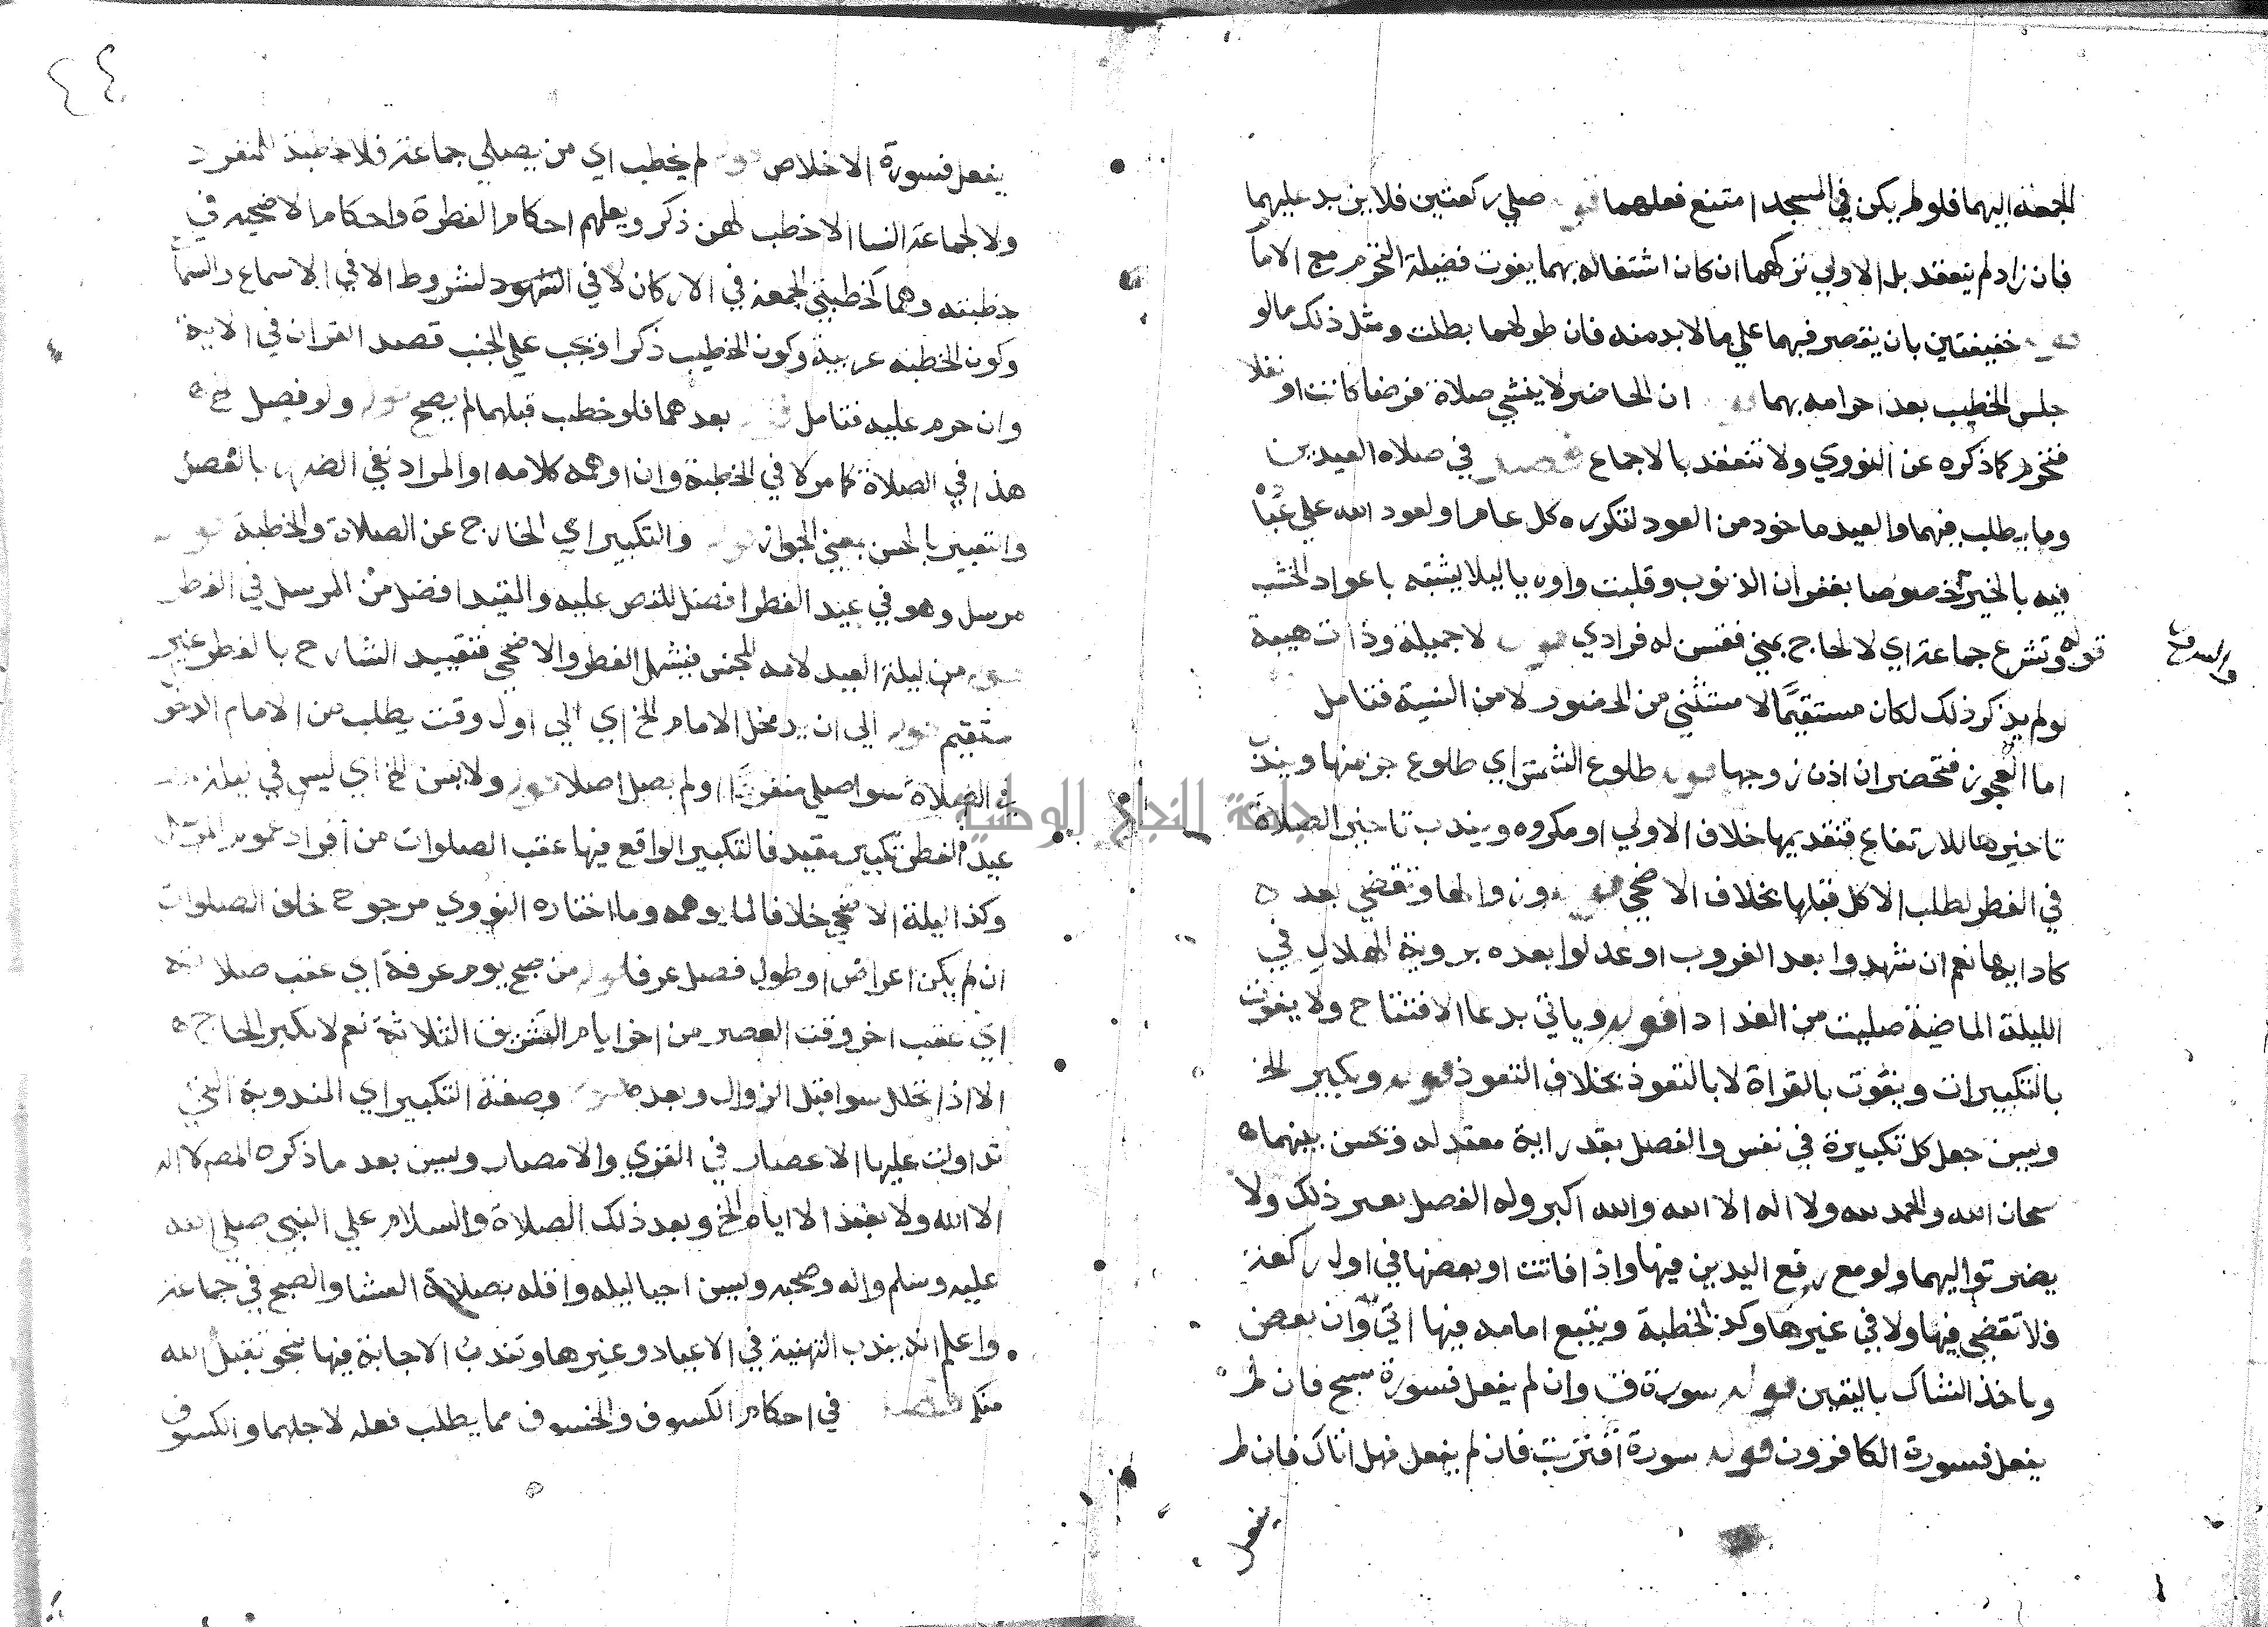 الجمعة اليهما فلو لم يكن في المسجد امتنع فعلهما قوله صلي ركعتين فلا يزيد عليهما
فان زاد لم ينعقد بل الاولي تركهما ان كان اشتغاله بهما يفوت فضيلة التحرم مع الاما
قوله خفيفتين بان يقتصر فيهما علي ما لابد منه فان طولهما بطلت ومثل ذلك مالو
جلس الخطيب بعد احرامه بهما قوله ان الحاضر لا ينشي صلاة فرضا كانت او نفلا
فتحرم كما ذكره عن النووي ولا تنعقد بالاجماع فصل في صلاة العيدين
وما يطلب فيهما والعيد ماخوذ من العود لتكرره كل عام او لعود الله علي عباده
فيه بالخير خصوصا بغفران الذنوب وقلبت واوه ياليلا يشتبه باعواد الخشب
قوله وتشرع جماعة اي لا لحاج بمني فتسن له فرادي قوله لا جميلة وذات هيية
والسروع
لو لم يذكر ذلك لكان مستقيما لا مستثني من الحضور لا من السنية فتامل
اما العجوز فتحضر ان اذن زوجها قوله طلوع الشمس اي طلوع جزمنها ويندب
تاخيرها للارتفاع فتقديمها خلاف الاولي او مكروه ويندب تاخير الصلاة
في الفطر لطلب الاكل قبلها بخلاف الاضحي قوله وزوالها وتقضي بعده
كادايها نعم ان شهدوا بعد الغروب او عدلوا بعده بروية الهلال في
الليلة الماضية صليت من الغد ادا قوله وياتي بدعا الافتتاح ولا يفوت
بالتكبيرات ويفوت بالقراة لا بالتعوذ بخلاف التعوذ قوله ويكبر الخ
ويسن جعل كل تكبيرة في نفس والفصل بقدر اية معتدله وتحسن بينهما
سبحان الله والحمد لله ولا اله الا الله والله اكبر وله الفصل بغير ذلك ولا
يضر تواليهما ولو مع رفع اليدين فيها واذا فاتت او بعضها في اول ركعة
فلا تقضي فيها ولا في غيرها وكذا الخطبة ويتبع امامه فيها اتي وان بعض
وياخذ الشاك باليقين قوله سورة ق وان لم يفعل فسورة سبح فان لم
يفعل فسورة الكافرون قوله سورة اقتربت فان لم يفعل فهل اتاك فان لم
يفعل
يفعل فسورة الاخلاص قوله لم يخطب اي من يصلي جماعة فلا خطبة لمنفرد
ولا لجماعة النسا الا خطب لهن ذكر ويعلمهم احكام الفطرة واحكام الاضحية في
خطبته وهما كخطبتي الجمعة في الاركان لا في الشروط الا في الاسماع والسماع
وكون الخطبة عربية وكون الخطيب ذكرا فيجب علي الجنب قصد القران في الاية
وان حرم عليه فتامل قوله بعدهما فلو خطب قبلهما لم يصح قوله ولو فصل الخ
هذا في الصلاة كما مر لا في الخطبة وان اوهمه كلامه او المراد نفي الضرر بالفصل
والتعبير بالحسن بمعني الجواز قوله والتكبير اي الخارج عن الصلاة والخطبة قوله
مرسل وهو في عيد الفطر افضل للنص عليه والمقيد افضل من المرسل في الفطر
قوله من ليلة العيد لامه للجنس فيشمل الفطر والاضحي فتقييد الشارح بالفطر غير
مستقيم قوله الي ان يدخل الامام الخ اي الي اول وقت يطلب من الامام الدخول
في الصلاة سوا صلي منفردا او لم يصل اصلا قوله ولا يسن الخ اي ليس في ليلة
عيد الفطر تكبير مقيد فالتكبير الواقع فيها عقب الصلوات من افراد عموم المرسل
وكذا ليلة الاضحي خلافا لما يوهمه وما اختاره النووي مرجوح خلف الصلوات
ان لم يكن اعراض او طول فصل عرفا قوله من صبح يوم عرفة اي عقب صلاته
اي عقب اخر وقت العصر من اخر ايام التشريق الثلاثة نعم لا يكبر الحاج
الا اذا تحلل سوا قبل الزوال وبعده قوله وصفة التكبير اي المندوبة التي
تداولت عليها الاعصار في القري والامصار ويسن بعد ما ذكره المص لا اله
الا الله ولا نعبد الا اياه الخ وبعد ذلك الصلاة والسلام علي النبي صلي الله
عليه وسلم واله وصحبه ويسن احيا ليله واقله بصلاة العشا والصبح في جماعة
واعلم انه يندب التهنية في الاعياد وغيرها وتندب الاجابة فيها بنحو تقبل الله
منكم فصل في احكام الكسوف والخسوف مما يطلب فعله لاجلهما والكسوف
جامعة النجاح الوطنية